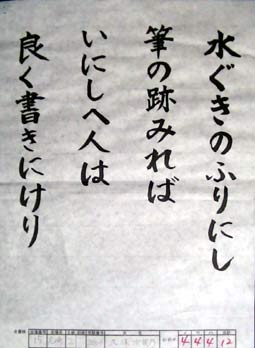 水ぐきのふりにし
筆の跡みれば
いにしへ人は
良く書きにけり
4 4 4 12